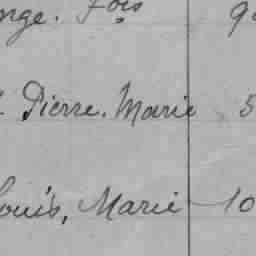 nge. Fois 9
Pierre. Marie 5
ouis, Marie 10